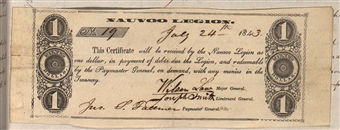 NAUVOO LEGION.
No. 19 July 24th 1843
This Certificate will be received by the Nauvoo Legion as
one dollar, in payment of debts due the Legion, and redeemable
by the Paymaster General, on demand, with any monies in the
Treasury.
Wilson Law Major General.
Joseph Smith Lieutenant General.
Paymaster General
1
1
1
1